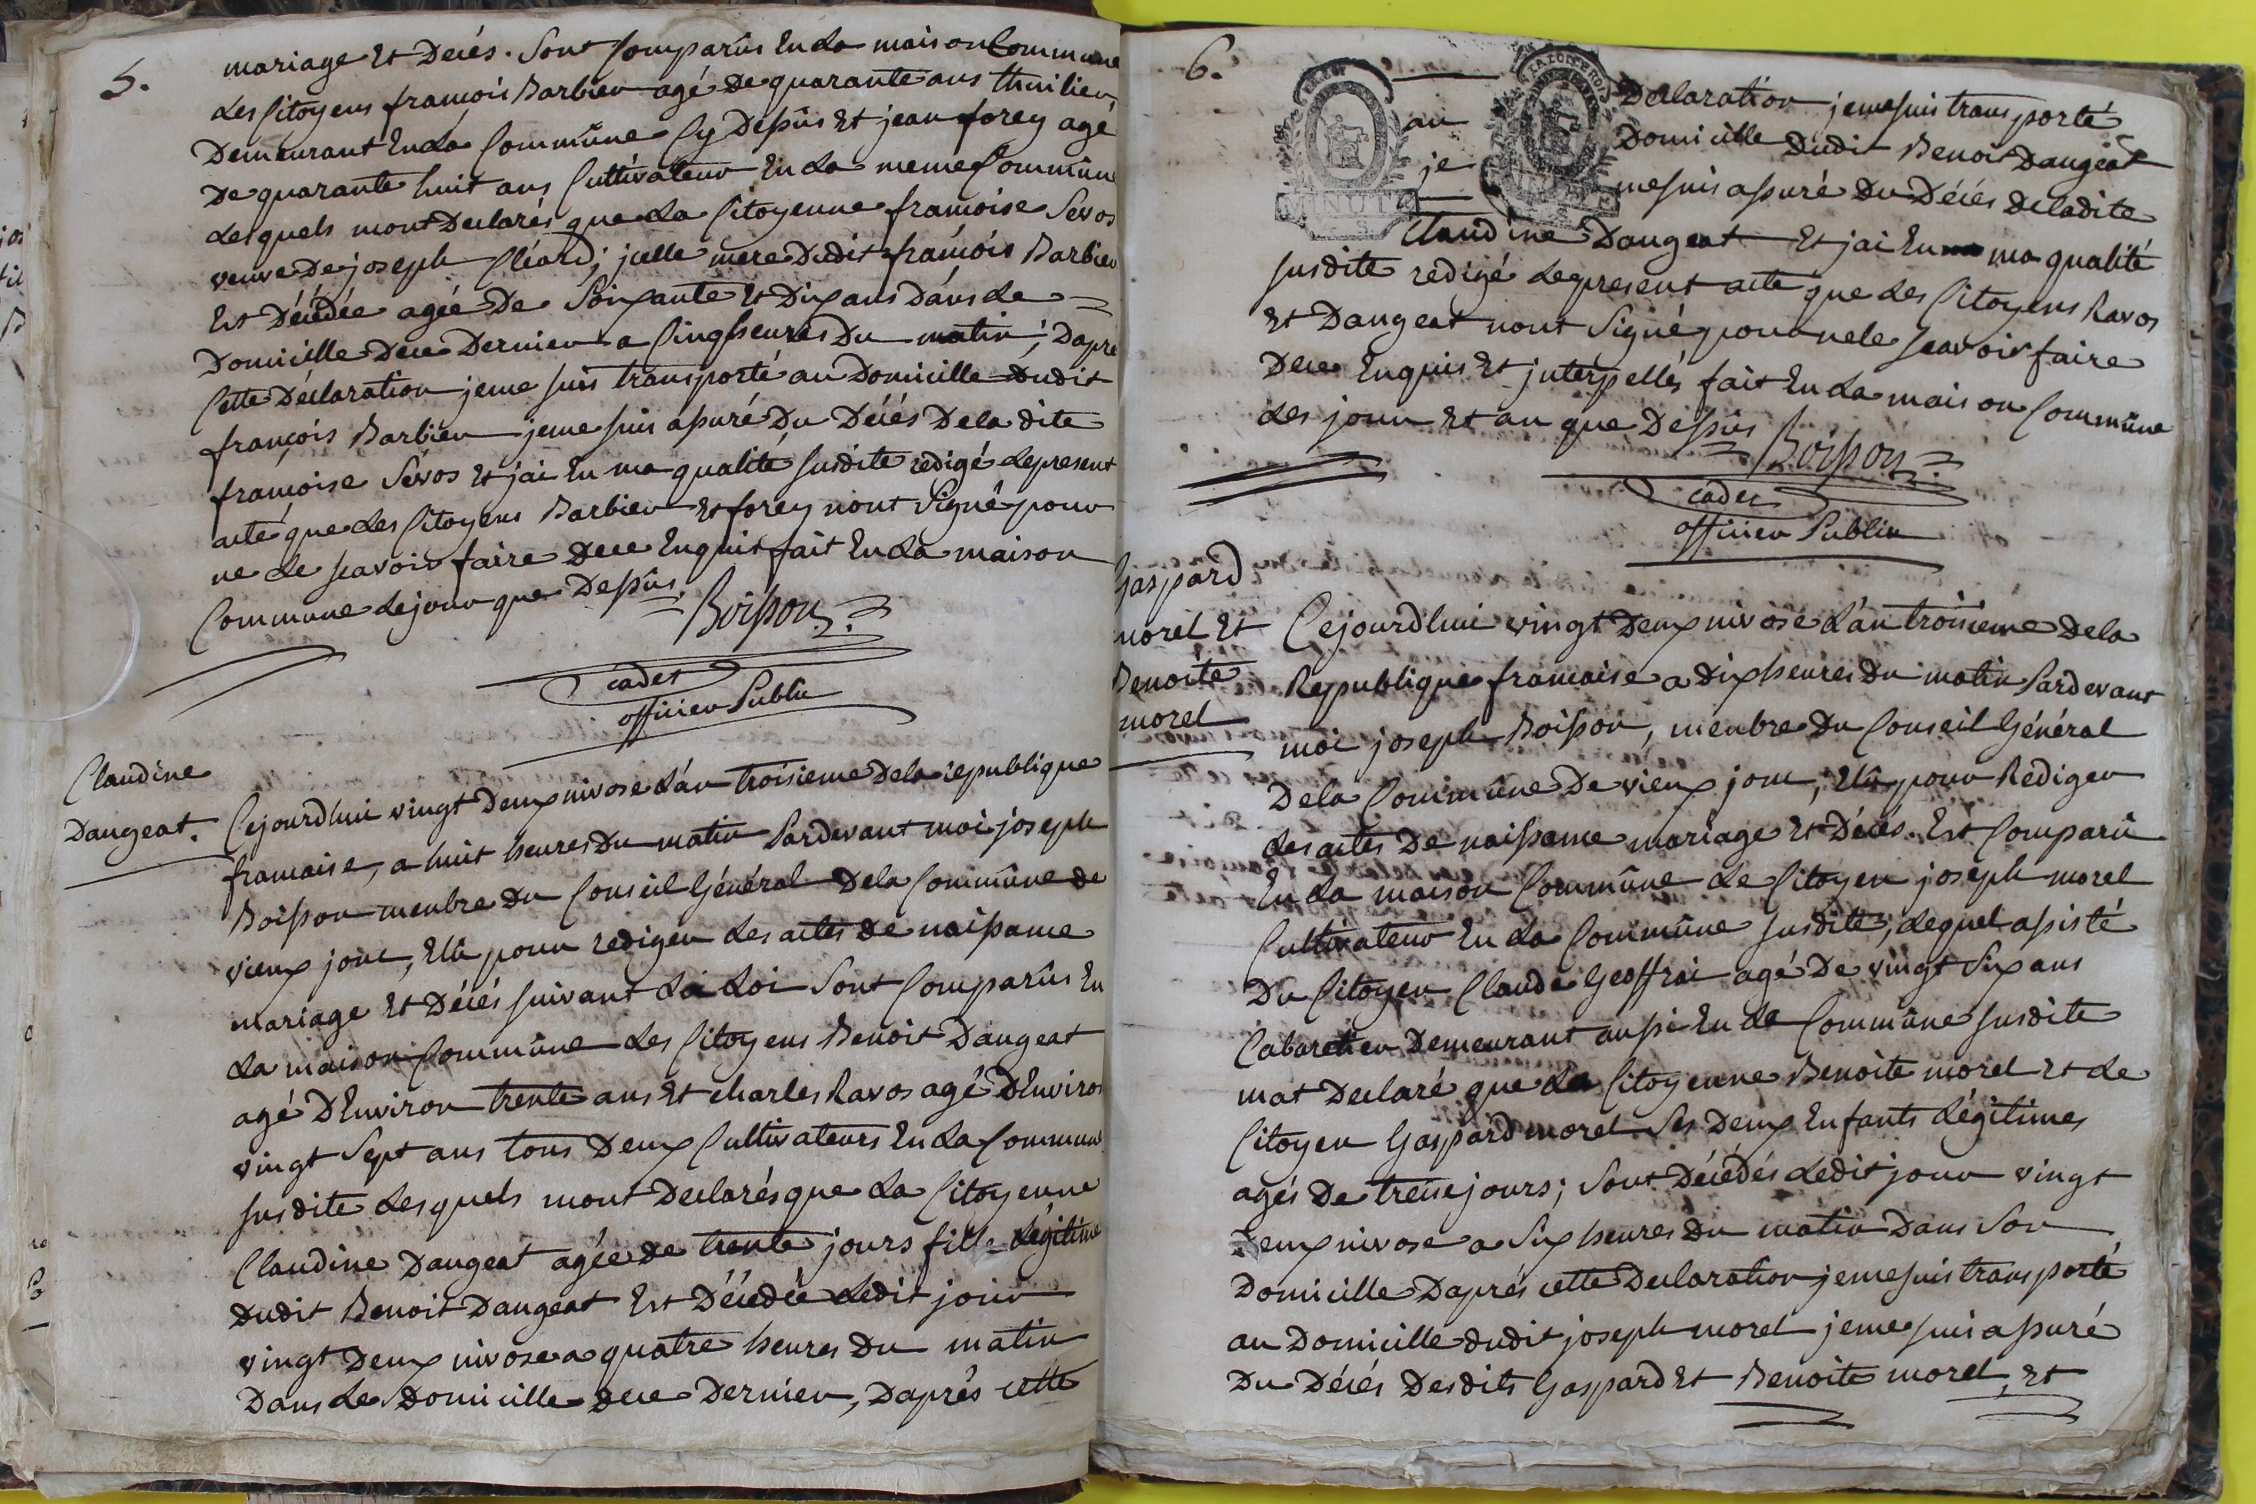 5.
mariage Et Decés. Sont Comparûs En La maison Commune
Les Citoyens françois Barbier agé de quarante ans thuilier,
Demeurant En La Commûne Cy Dessûs Et jean forey agé
De quarante huit ans Cultivateur En La meme Commûne
Lesquels mont Declarés que La Citoyenne françoise Sevos
veuve De joseph Cléard; jcelle mere Dudit françois Barbier
Est Décédée agée De Soixante Et Dix ans Dans Le
Domicille De ce Dernier a Cinq heures Du matin; Dapre
Cette Déclaration je me suis transporté au Domicille dudit
françois Barbier je me suis assuré Du Décés De la dite
françoise Sévos Et jai En ma qualité susdite redigé Le present
acte que Les Citoyens Barbier Et forey nont Signé pour
ne Le scavoir faire De ce Enquis fait En La maison
Commune Le jour que Dessûs
Boisson
cadet
officier Public
Claudine
Dangeat.
Cejourdhui vingt Deux nivose L'an troisieme De la republique
francaise, a huit heures Du matin Pardevant moi joseph
Boisson menbre du Conseil Général De la Commûne de
vieux jouc, Elû pour rediger Les actes de naissance
mariage Et Décés suivant La Loi Sont Comparûs En
La maison Commûne Les Citoyens Benoit Dangeat
agé D'Environ trente ans Et charles Ravos agé D'Environ
vingt Sept ans tous Deux Cultivateurs En La Commune
susdite Lesquels mont Declarés que La Citoyenne
Claudine Dangeat agée de trente jours fille Légitime
dudit Benoit Dangeat Est Décédée Ledit jour
vingt Deux nivose a quatre heures Du matin
Dans Le Domicille De ce Dernier, Daprés cette
6.
MINUTE
LA LOI LE ROI
Declaration je me suis transporté
au Domicille Dudit Benoit Dangeat
je me suis assuré Du Décés De ladite
Claudine Dangeat Et jai En ma qualité
susdite redigé Le present acte que Les Citoyens Ravos
Et Dangeat nont Signé pour ne le scavoir faire
De ce Enquis Et jnterpellés fait En La maison Commûne
Les jour Et an que Dessûs
Boisson
cadet
officier Public
Gaspard
morel Et
Benoite
morel
Cejourdhui vingt Deux nivose L'an troisieme De la
Republique francaise a dix heures Du matin Pardevant
moi joseph Boisson, menbre Du Conseil Général
De la Commûne De vieux jouc, Elû pour Rediger
Les actes De naissance mariage Et Décés. Est Comparû
En La maison Commûne Le Citoyen joseph morel
Cultivateur En La Commûne susdite, Lequel assisté
Du Citoyen Claude Geoffrai agé De vingt Six ans
Cabaretier Demeurant aussi En La Commûne susdite
mat Declaré que La Citoyenne Benoite morel Et Le
Citoyen Gaspard morel Ses Deux Enfants Légitimes
agés De treise jours; Sont Décédés Ledit jour vingt
Deux nivose a Six heures Du matin Dans Son
Domicille Daprés cette Declaration je me suis transporté
au Domicille dudit joseph morel je me suis assuré
Du Décés Desdits Gaspard Et Benoite morel, Et